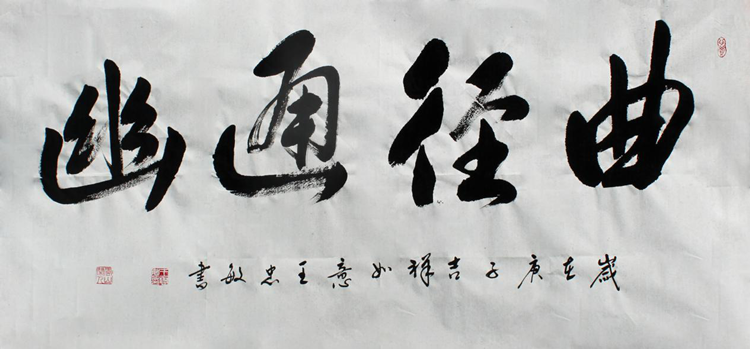 曲径通幽
岁在庚子吉祥如意王忠敏书